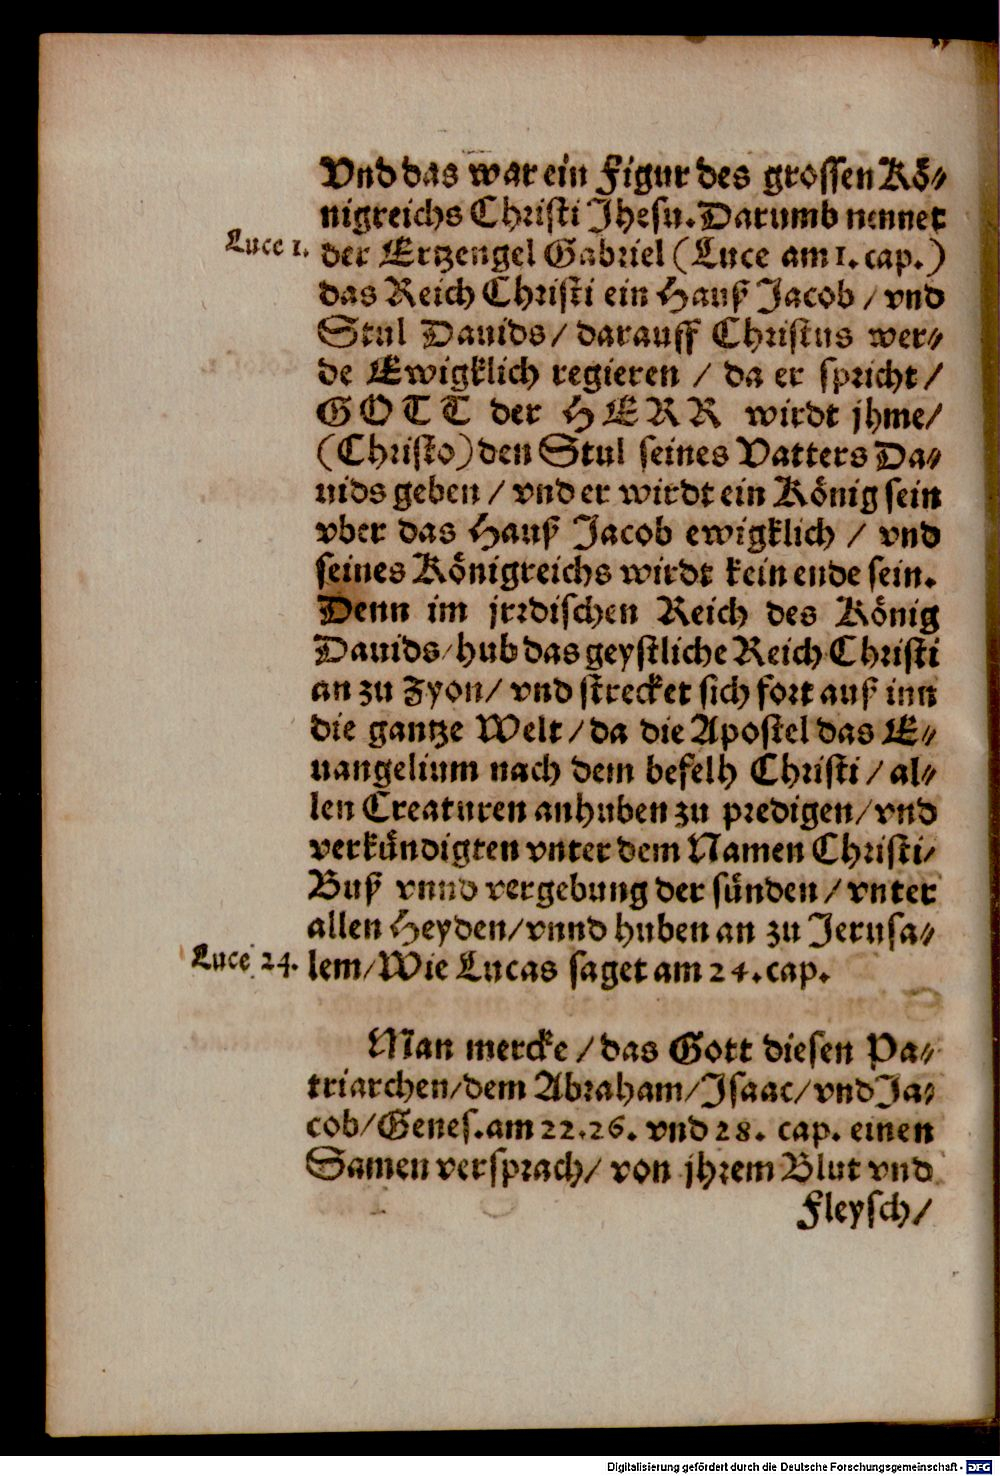 Vnd das war ein Figur des grossen Kö-
nigreichs Christi Jhesu. Darumb nennet
Luce 1.
der Ertzengel Gabriel (Luce am 1. cap.)
das Reich Christi ein Hauß Jacob / vnd
Stul Dauids / darauff Christus wer-
de Ewigklich regieren / da er spricht /
GOTT der HERR wirdt jhme /
(Christo) den Stul seines Vatters Da-
uids geben / vnd er wirdt ein König sein
vber das Hauß Jacob ewigklich / vnd
seines Königreichs wirdt kein ende sein.
Denn im jrrdischen Reich des König
Dauids / hub das geystliche Reich Christi
an zu Zyon / vnd strecket sich fort auß inn
die gantze Welt / da die Apostel das E-
uangelium nach dem befelh Christi / al-
len Creaturen anhuben zu predigen / vnd
verkündigten vnter dem Namen Christi /
Buß vnnd vergebung der sünden / vnter
allen Heyden / vnnd huben an zu Jerusa-
Luce 24.
lem / Wie Lucas saget am 24. cap.
Man mercke / das Gott diesen Pa-
triarchen / dem Abraham / Isaac / vnd Ja-
cob / Genes. am 22. 26. vnd 28. cap. einen
Samen versprach / von jhrem Blut vnd
Fleysch /
Digitalisierung gefördert durch die Deutsche Forschungsgemeinschaft - DFG